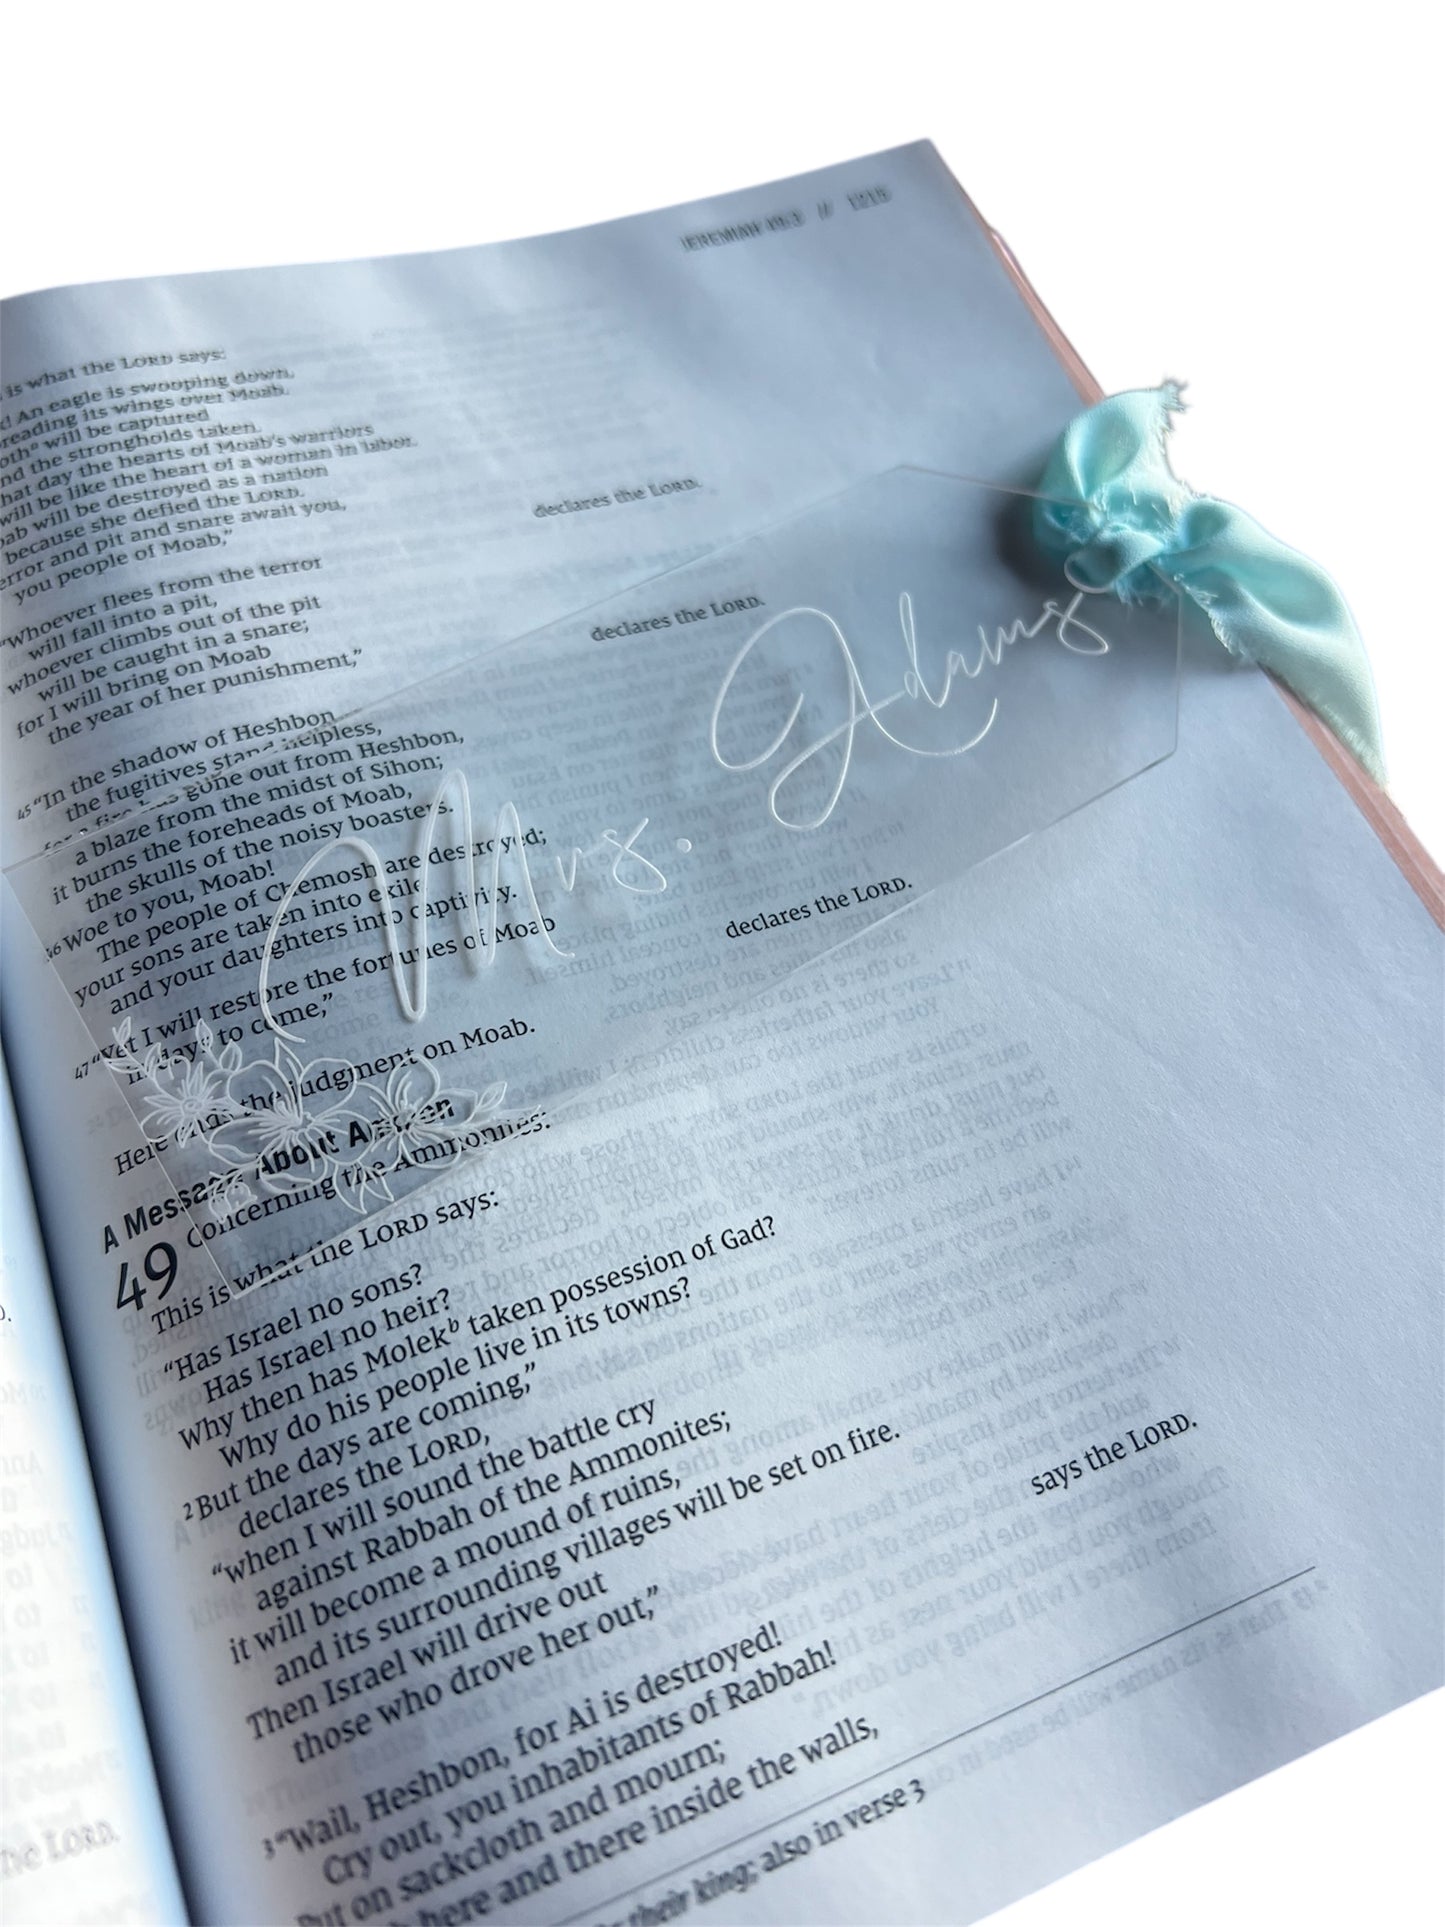 JEREMIAH 49:3 // 1215
is what the LORD says:
An eagle is swooping down,
reading its wings over Moab.
will be captured
nd the strongholds taken.
hat day the hearts of Moab's warriors
will be like the heart of a woman in labor.
ab will be destroyed as a nation
because she defied the LORD.
error and pit and snare await you,
you people of Moab,”
declares the LORD.
“Whoever flees from the terror
will fall into a pit,
whoever climbs out of the pit
will be caught in a snare;
for I will bring on Moab
the year of her punishment,”
declares the LORD.
45 “In the shadow of Heshbon
the fugitives stand helpless,
for a fire has gone out from Heshbon,
a blaze from the midst of Sihon;
it burns the foreheads of Moab,
the skulls of the noisy boasters.
46 Woe to you, Moab!
The people of Chemosh are destroyed;
your sons are taken into exile
and your daughters into captivity.
47 “Yet I will restore the fortunes of Moab
in days to come,”
declares the LORD.
Here ends the judgment on Moab.
Mrs. Adams
A Message About Ammon
49 Concerning the Ammonites:
This is what the LORD says:
“Has Israel no sons?
Has Israel no heir?
Why then has Molek b taken possession of Gad?
Why do his people live in its towns?
2 But the days are coming,”
declares the LORD,
“when I will sound the battle cry
against Rabbah of the Ammonites;
it will become a mound of ruins,
and its surrounding villages will be set on fire.
Then Israel will drive out
those who drove her out,”
says the LORD.
3 “Wail, Heshbon, for Ai is destroyed!
Cry out, you inhabitants of Rabbah!
Put on sackcloth and mourn;
here and there inside the walls,
their king; also in verse 3
he LORD.